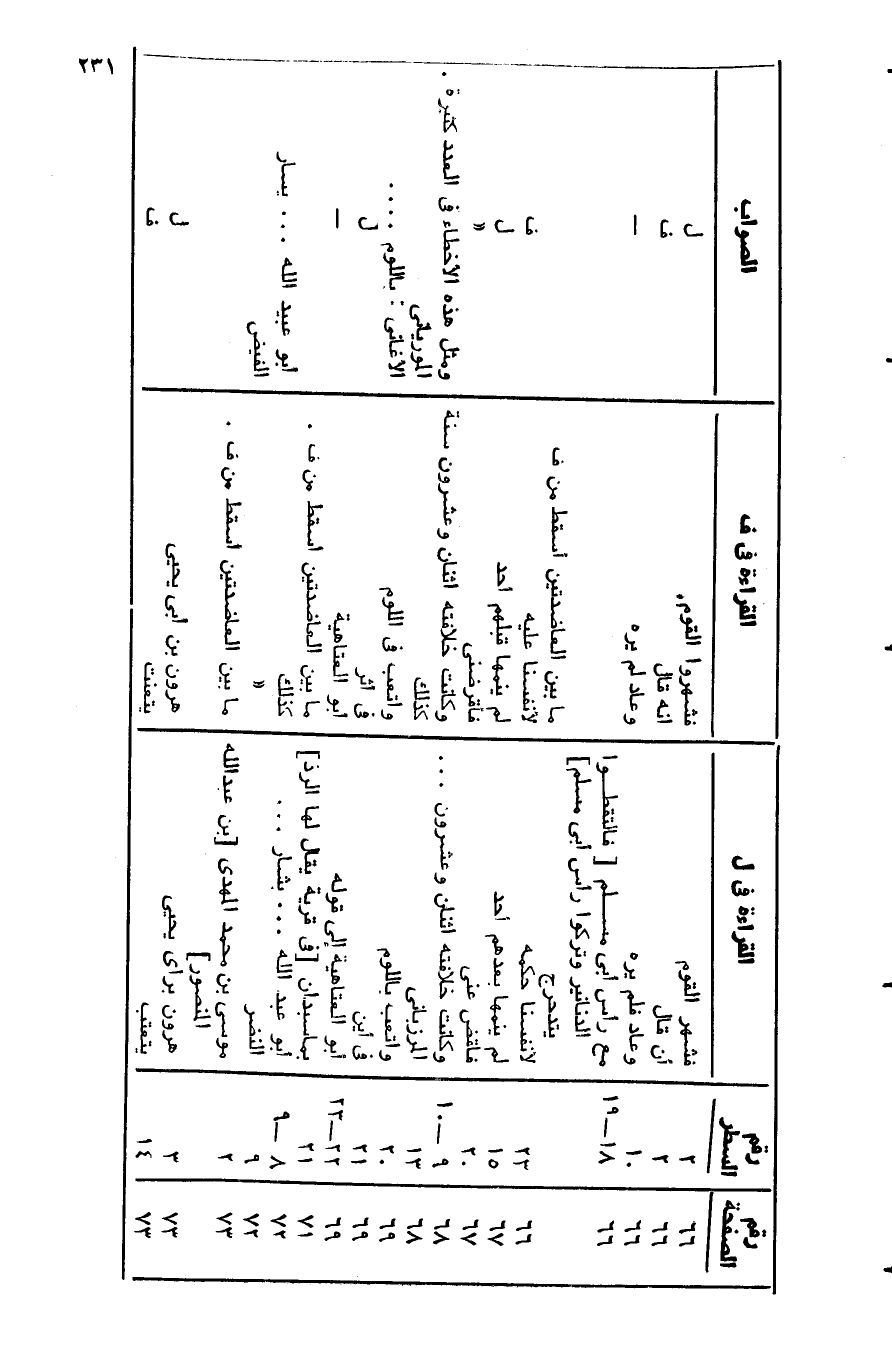 ٢٣١
رقم الصفحة | رقم السطر | القراءة فى ل | القراءة فى ف | الصواب
٦٦ | ٢ | فشهر القوم | فشهروا القوم | ل
٦٦ | ٢ | أن قال | انه قال | ف
٦٦ | ١٠ | وعاد فلم يره | وعاد لم يره | ا
٦٦ | ١٨—١٩ | مع رأس أبى مسلم [ فالتقطوا
الدنانير وتركوا رأس أبى مسلم]
يتدحرج | ما بين العاضدتين أسقط من ف
٦٦ | ٢٣ | لأنفسنا حكمه | لأنفسنا عليه | ف
٦٧ | ١٥ | لم ينمها بعدهم أحد | لم ينمها قبلهم أحد | ل
٦٧ | ٢٠ | فاقض عنى | فأقرضنى | »
٦٨ | ٩—١٠ | وكانت خلافته اثنان وعشرون ... | وكانت خلافته اثنان وعشرون سنة | ومثل هذه الأخطاء فى العدد كثيرة .
٦٨ | ١٣ | المرزبانى | كذلك | الموريانى
٦٩ | ٢٠ | واتعب باللوم | واتعب فى اللوم | الأغانى : باللوم ....
٦٩ | ٢١ | فى أين | فى أثر | ل
٦٩ | ٢٢—٢٣ | أبو العتاهية إلى قوله | أبو العتاهية | ا
٧١ | ٢١ | بماسبدان [فى قرية يقال لها الرذ] | ما بين العاضدتين أسقط من ف .
٧٢ | ٨—٩ | أبو عبد الله ... بشار ... | كذلك | أبو عبيد الله ... يسار
٧٢ | ٩ | النضر | » | الفيض
٧٣ | ٢ | موسى بن محمد المهدى [بن عبدالله
المنصور] | ما بين العاضدتين أسقط من ف .
٧٣ | ٣ | هرون براى يحيى | هرون بن أبى يحيى | ل
٧٣ | ١٤ | يتعتب | يتعنت | ف